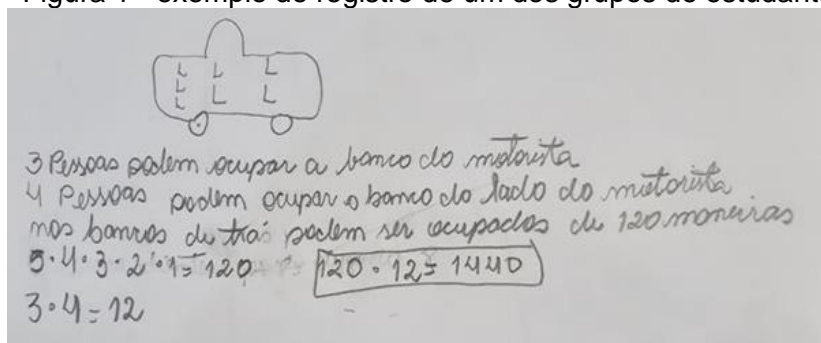 Figura 1 - exemplo do registro de um dos grupos de estudant
3 Pessoas podem ocupar a banco do motorista
4 Pessoas podem ocupar o banco do lado do motorista
nos bancos de trás podem ser ocupados de 120 maneiras
5·4·3·2·1=120 120·12=1440
3·4=12